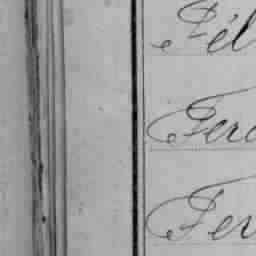 Fél
Ferd
Fer